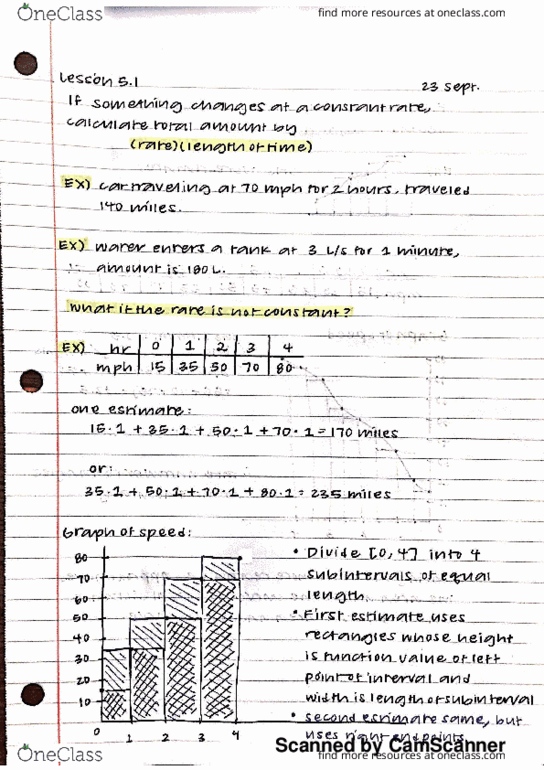 OneClass
find more resources at oneclass.com
Lesson 5.1
23 Sept.
If something changes at a constant rate,
calculate total amount by
(rate)(length of time)
EX) car traveling at 70 mph for 2 hours, traveled
140 miles.
EX) water enters a tank at 3 L/s for 1 minute,
amount is 180 L.
what if the rate is not constant?
EX) hr 0 1 2 3 4
mph 15 35 50 70 80
one estimate:
15·1 + 35·1 + 50·1 + 70·1 = 170 miles
or:
35·1 + 50·1 + 70·1 + 80·1 = 235 miles
Graph of speed:
80
70
60
50
40
30
20
10
0 1 2 3 4
• Divide [0,4] into 4
subintervals of equal
length
• First estimate uses
rectangles whose height
is function value of left
point of interval and
width is length of subinterval
• second estimate same, but
uses right endpoints
Scanned by CamScanner
OneClass
find more resources at oneclass.com